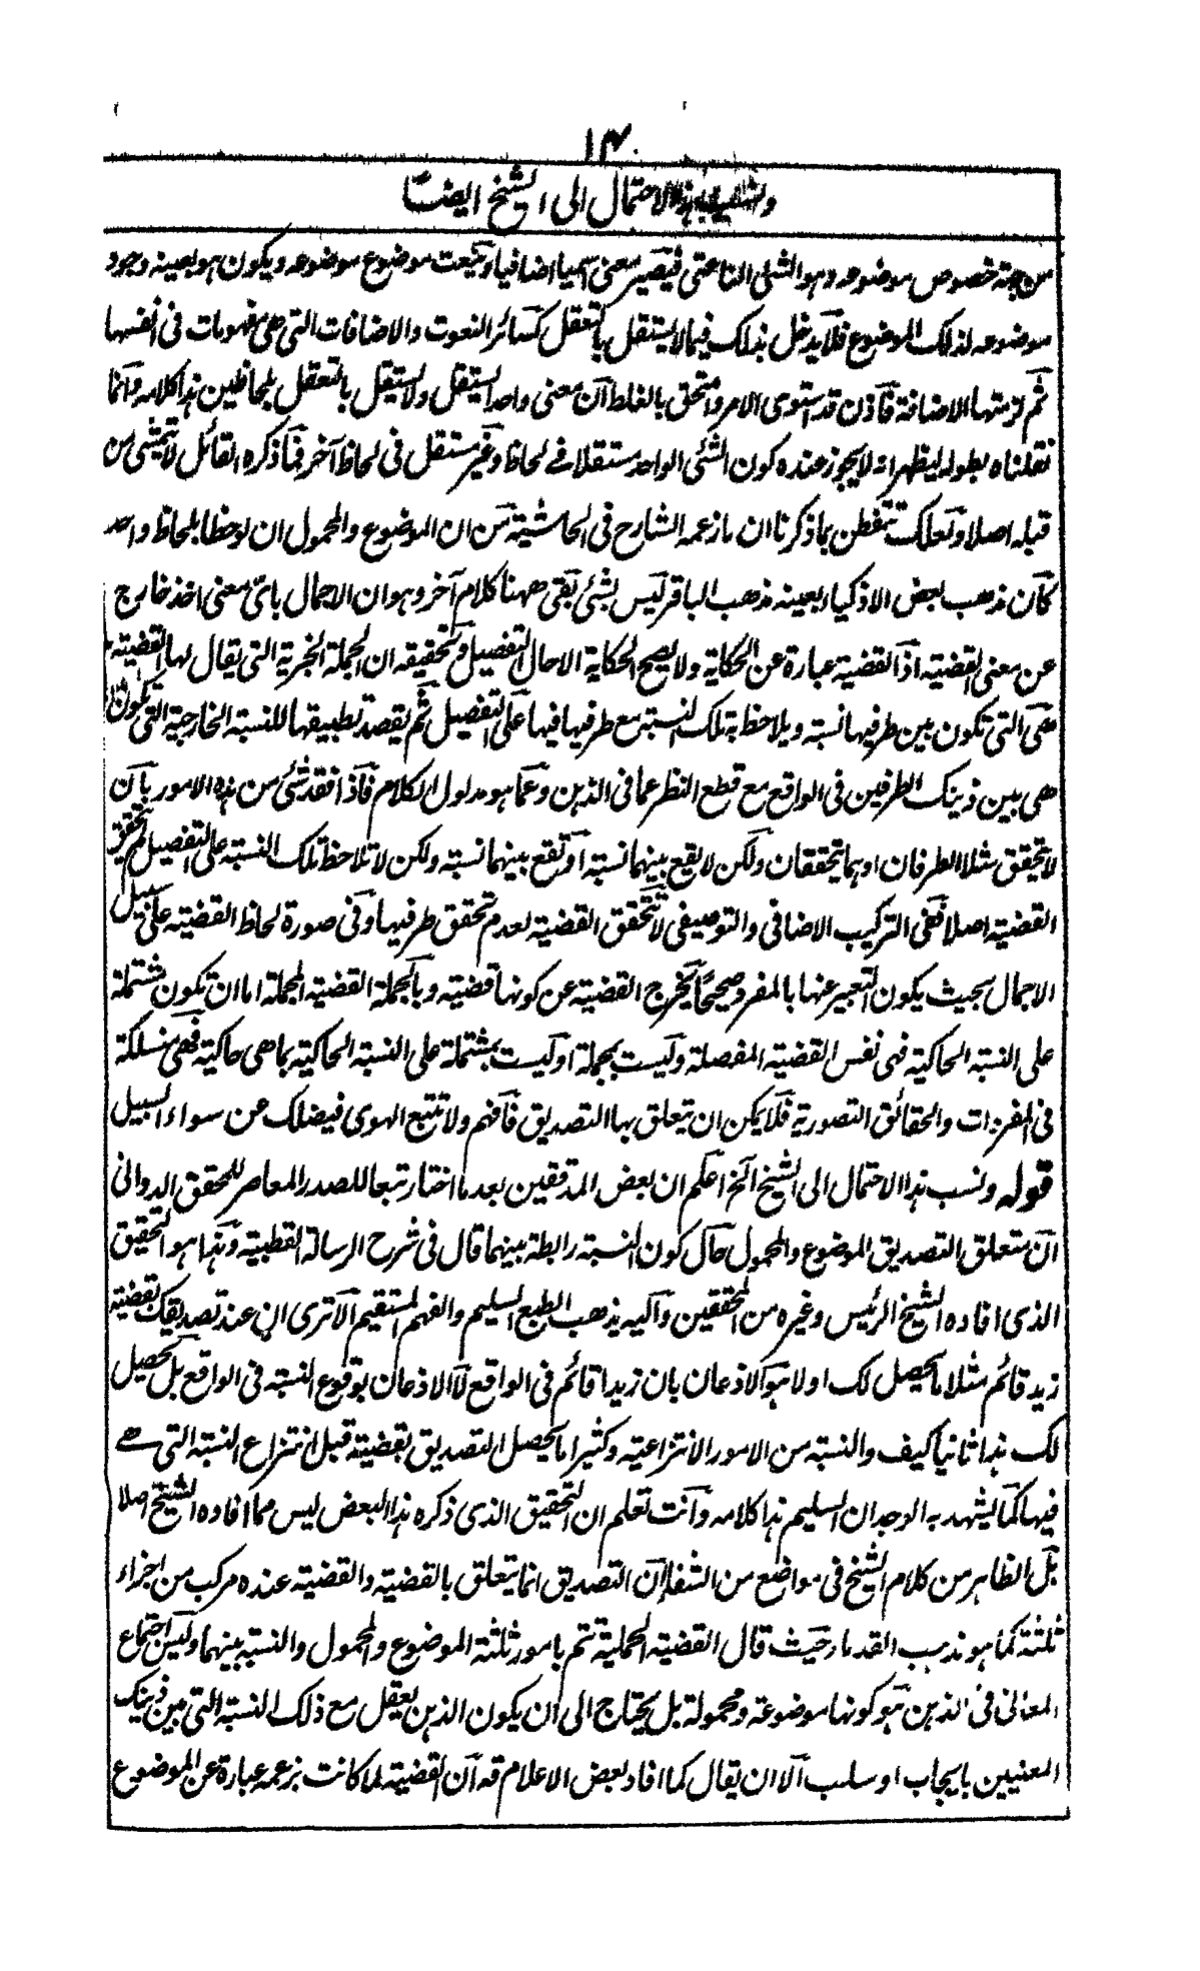 ١٤٠
ونسب هذا الاحتمال الى الشيخ ايضا
من جهة خصوص موضوعه وهو الشئ الناعتى فيصير معنى اسميا اضافيا وتبعت موضوع موضوعه ويكون هو بعينه وجود
موضوعه لذلك الموضوع فلا يدخل بذلك فيما لا يستقل بالتعقل كسائر النعوت والاضافات التى هى مفهومات فى انفسها
ثم لزمتها الاضافة فاذن قد استوى الامر وامتحق بالغلط ان معنى واحد ايستقل ولا يستقل بالتعقل بلحاظين هذا كلامه وانما
نقلناه بطوله ليظهر انه لا يجوز عنده كون الشئ الواحد مستقلا فى لحاظ وغير مستقل فى لحاظ آخر فما ذكره القائل لا يتمشى من
قبله اصلا ولعلك تتفطن بما ذكرنا ان ما زعمه الشارح فى الحاشية من ان الموضوع والمحمول ان لوحظا بلحاظ واحد
كان مذهب بعض الاذكياء بعينه مذهب الباقر ليس بشئ بقى ههنا كلام آخر وهو ان الاجمال باىّ معنى اخذ خارج
عن معنى القضية اذ القضية عبارة عن الحكاية ولا يصح الحكاية الا حال التفصيل وتحقيقه ان الجملة الخبرية التى يقال لها القضية
هى التى تكون بين طرفيها نسبة ويلاحظ تلك النسبة مع طرفيها فيها على التفصيل ثم يقصد تطبيقها للنسبة الخارجية التى تكون
هى بين ذينك الطرفين فى الواقع مع قطع النظر عما فى الذهن وعما هو مدلول الكلام فاذا فقد شئ من هذه الامور بان
لا يتحقق مثلا الطرفان او هما يتحققان ولكن لا يقع بينهما نسبة او تقع بينهما نسبة ولكن لا تلاحظ تلك النسبة على التفصيل لم يتحقق
القضية اصلا ففى التركيب الاضافى والتوصيفى لا تتحقق القضية لعدم تحقق طرفيها وفى صورة لحاظ القضية على سبيل
الاجمال بحيث يكون التعبير عنها بالمفرد صحيحا يخرج القضية عن كونها قضية وبالجملة القضية المجملة اما ان تكون مشتملة
على النسبة الحاكية فهى نفس القضية المفصلة وليست بمجملة او ليست بمشتملة على النسبة الحاكية بما هى حاكية فهى منسلكة
فى المفردات والحقائق التصورية فلا يمكن ان تتعلق بها التصديق فافهم ولا تتبع الهوى فيضلك عن سواء السبيل
قوله ونسب هذا الاحتمال الى الشيخ الخ اعلم ان بعض المدققين بعد ما اختار تبعا للصدر المعاصر للمحقق الدوانى
ان متعلق التصديق الموضوع والمحمول حال كون النسبة رابطة بينهما قال فى شرح الرسالة القطبية وهذا هو التحقيق
الذى افاده الشيخ الرئيس وغيره من المحققين واليه يذهب الطبع السليم والفهم المستقيم الا ترى ان عند تصديقك بقضية
زيد قائم مثلا ما يحصل لك اولا هو الاذعان بان زيدا قائم فى الواقع لا الاذعان بوقوع النسبة فى الواقع بل يحصل
لك هذا ثانيا كيف والنسبة من الامور الانتزاعية وكثيرا ما يحصل التصديق بقضية قبل انتزاع النسبة التى هى
فيها كما يشهد به الوجدان السليم هذا كلامه وانت تعلم ان التحقيق الذى ذكره هذا البعض ليس مما افاده الشيخ اصلا
بل الظاهر من كلام الشيخ فى مواضع من الشفا ان التصديق انما يتعلق بالقضية والقضية عنده مركب من اجزاء
ثلثة كما هو مذهب القدماء حيث قال القضية الحملية تتم بامور ثلثة الموضوع والمحمول والنسبة بينهما وليس اجتماع
المعانى فى الذهن هو كونها موضوعة ومحمولة بل يحتاج الى ان يكون الذهن يعقل مع ذلك النسبة التى بين ذينك
المعنيين بايجاب او سلب الا ان يقال كما افاد بعض الاعلام قه ان القضية لما كانت بزعمه عبارة عن الموضوع